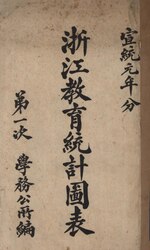 宣統元年分
浙江教育統計圖表
第一次 學務公所編